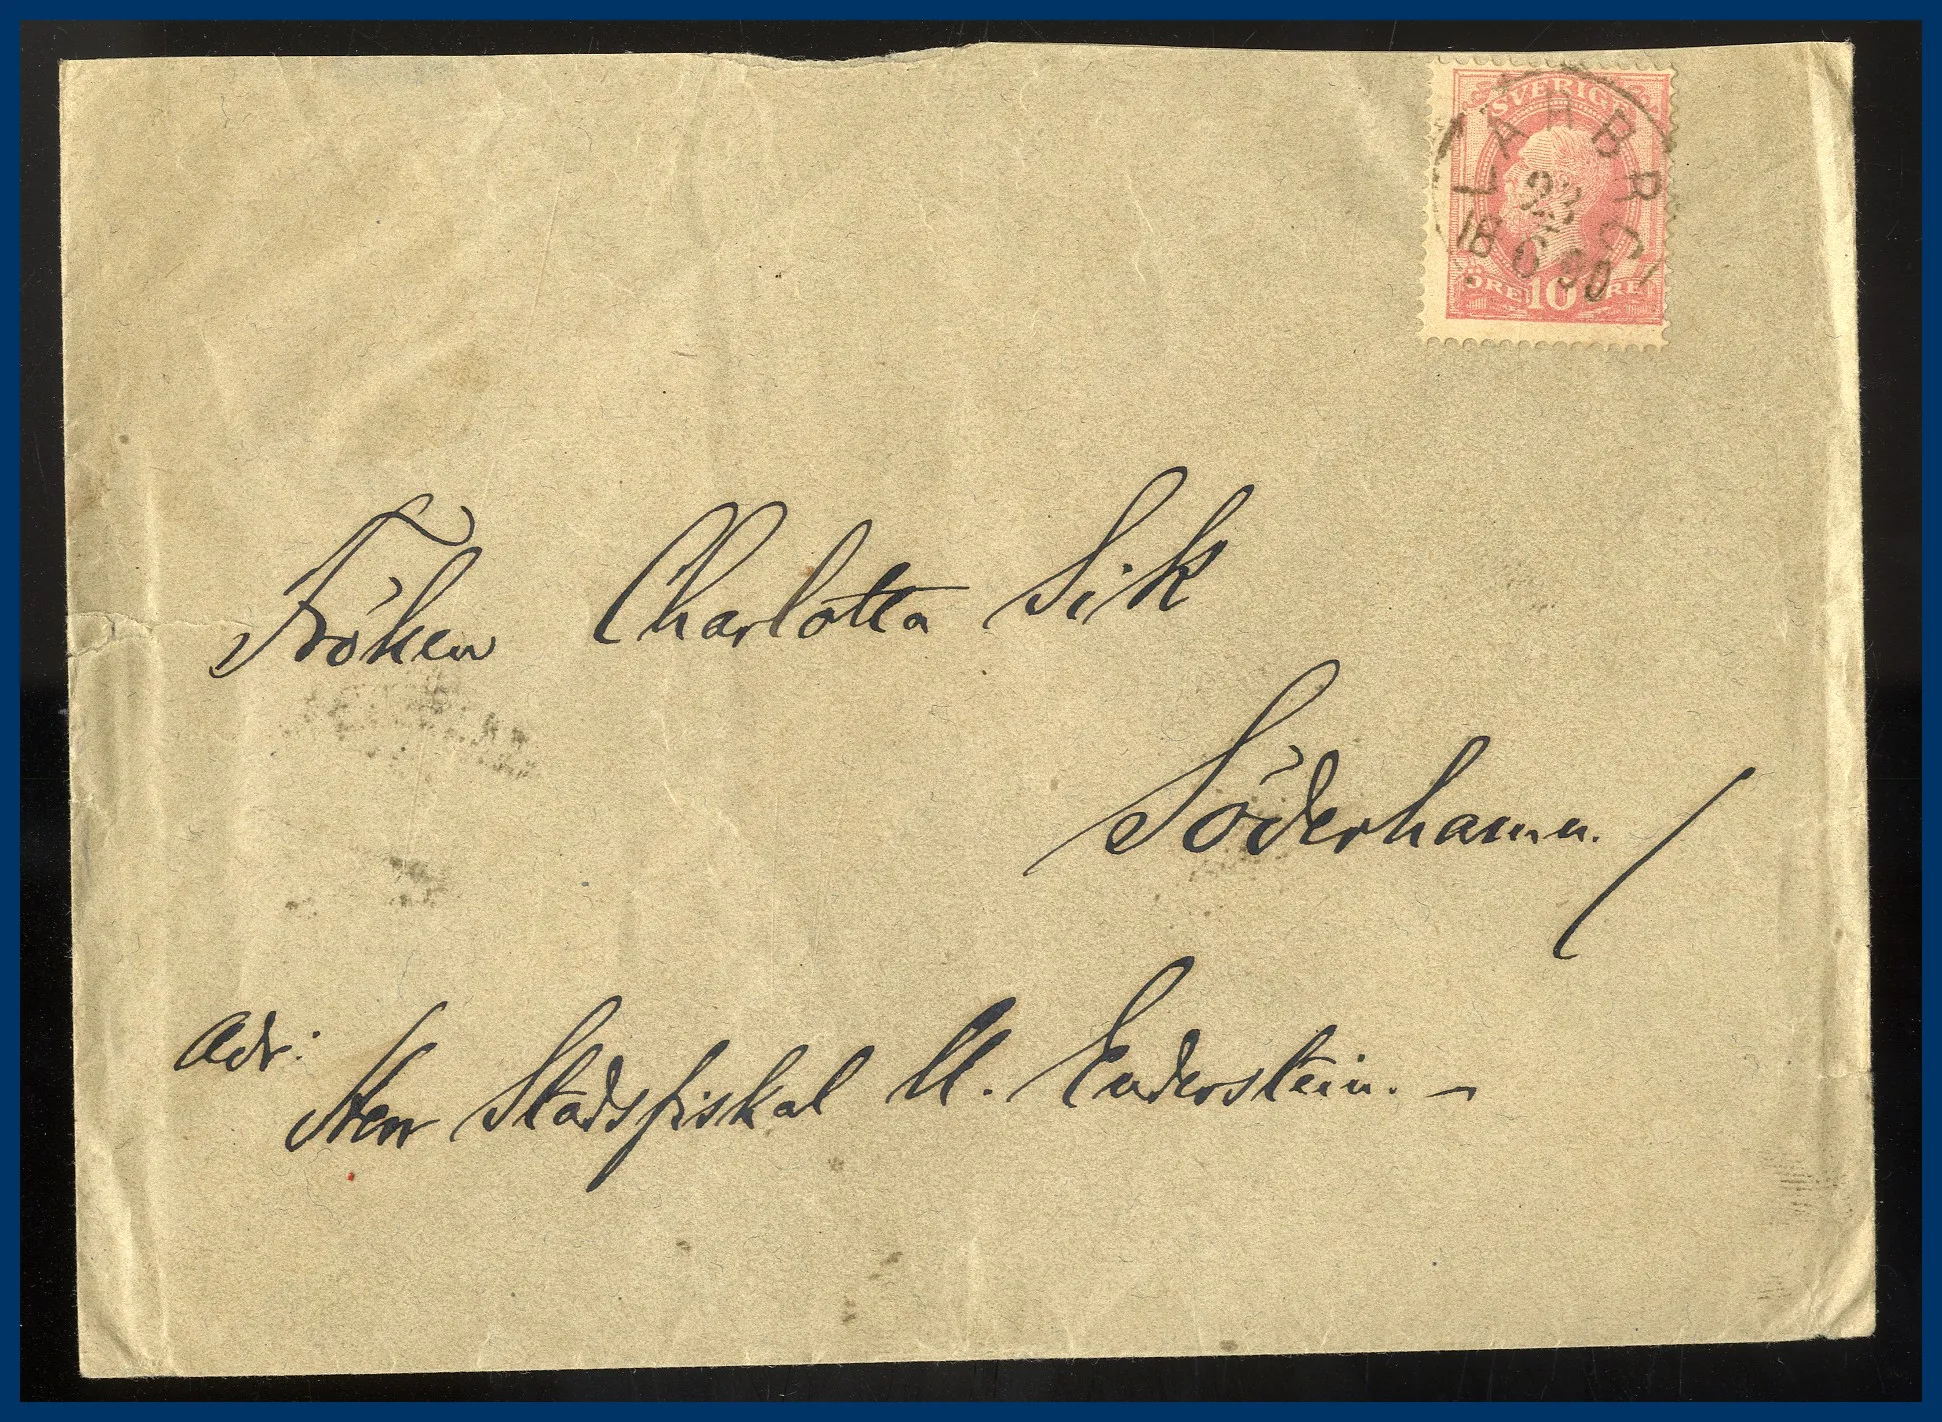 SVERIGE
LÄRBRO
23
18 6 90
ÖRE 10 ÖRE
Fröken Charlotta Sik
Söderhamn.
Adr:
Herr Stadsfiskal U. Enderstein. –